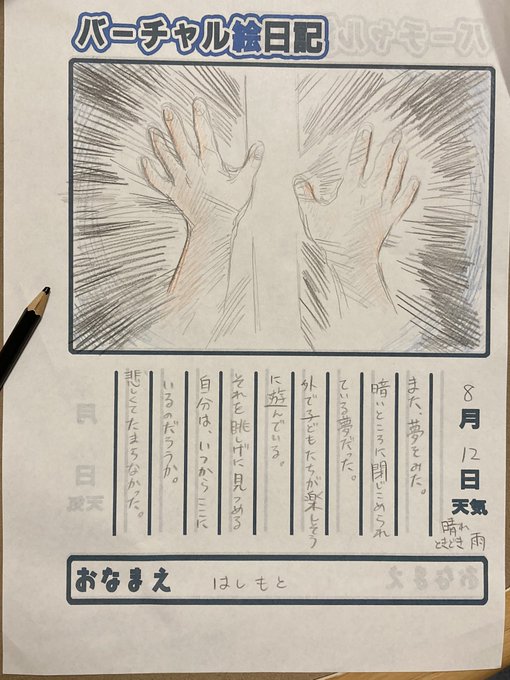 バーチャル絵日記
8月12日
天気
晴れ
ときどき雨
また、夢をみた。
暗いところに閉じこめられ
ている夢だった。
外で子どもたちが楽しそう
に遊んでいる。
それを眺しげに見つめる
自分は、いつからここに
いるのだろうか。
悲しくてたまらなかった。
おなまえ はしもと